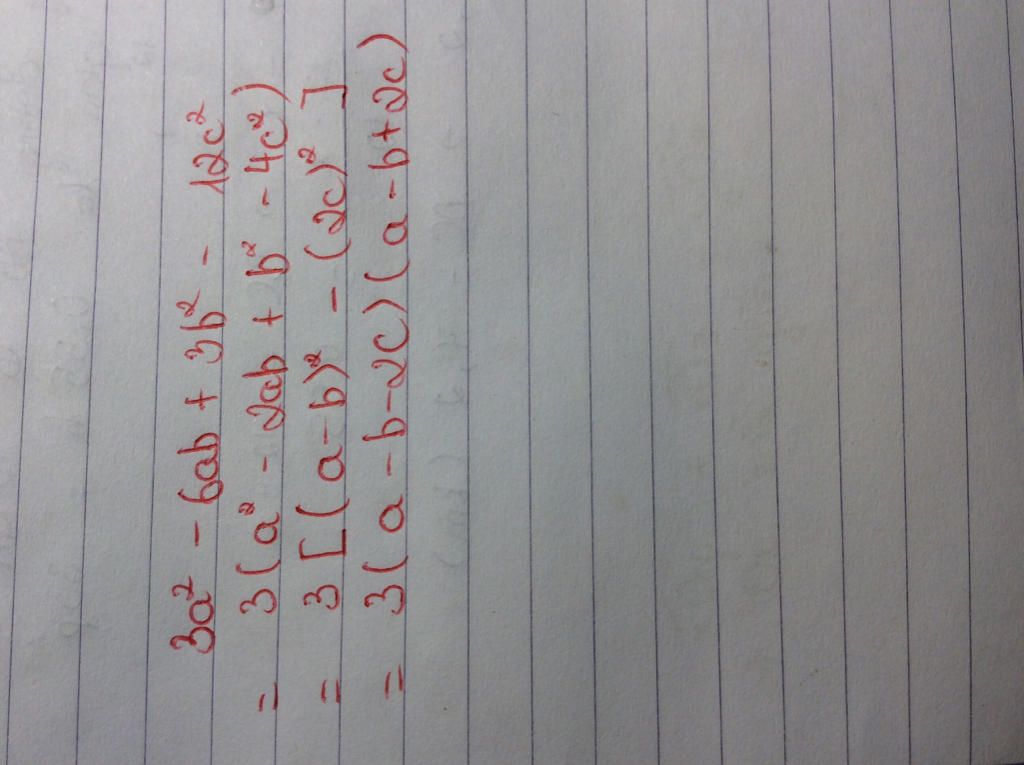 3a² - 6ab + 3b² - 12c²
= 3(a² - 2ab + b² - 4c²)
= 3[(a-b)² - (2c)²]
= 3(a-b-2c)(a-b+2c)